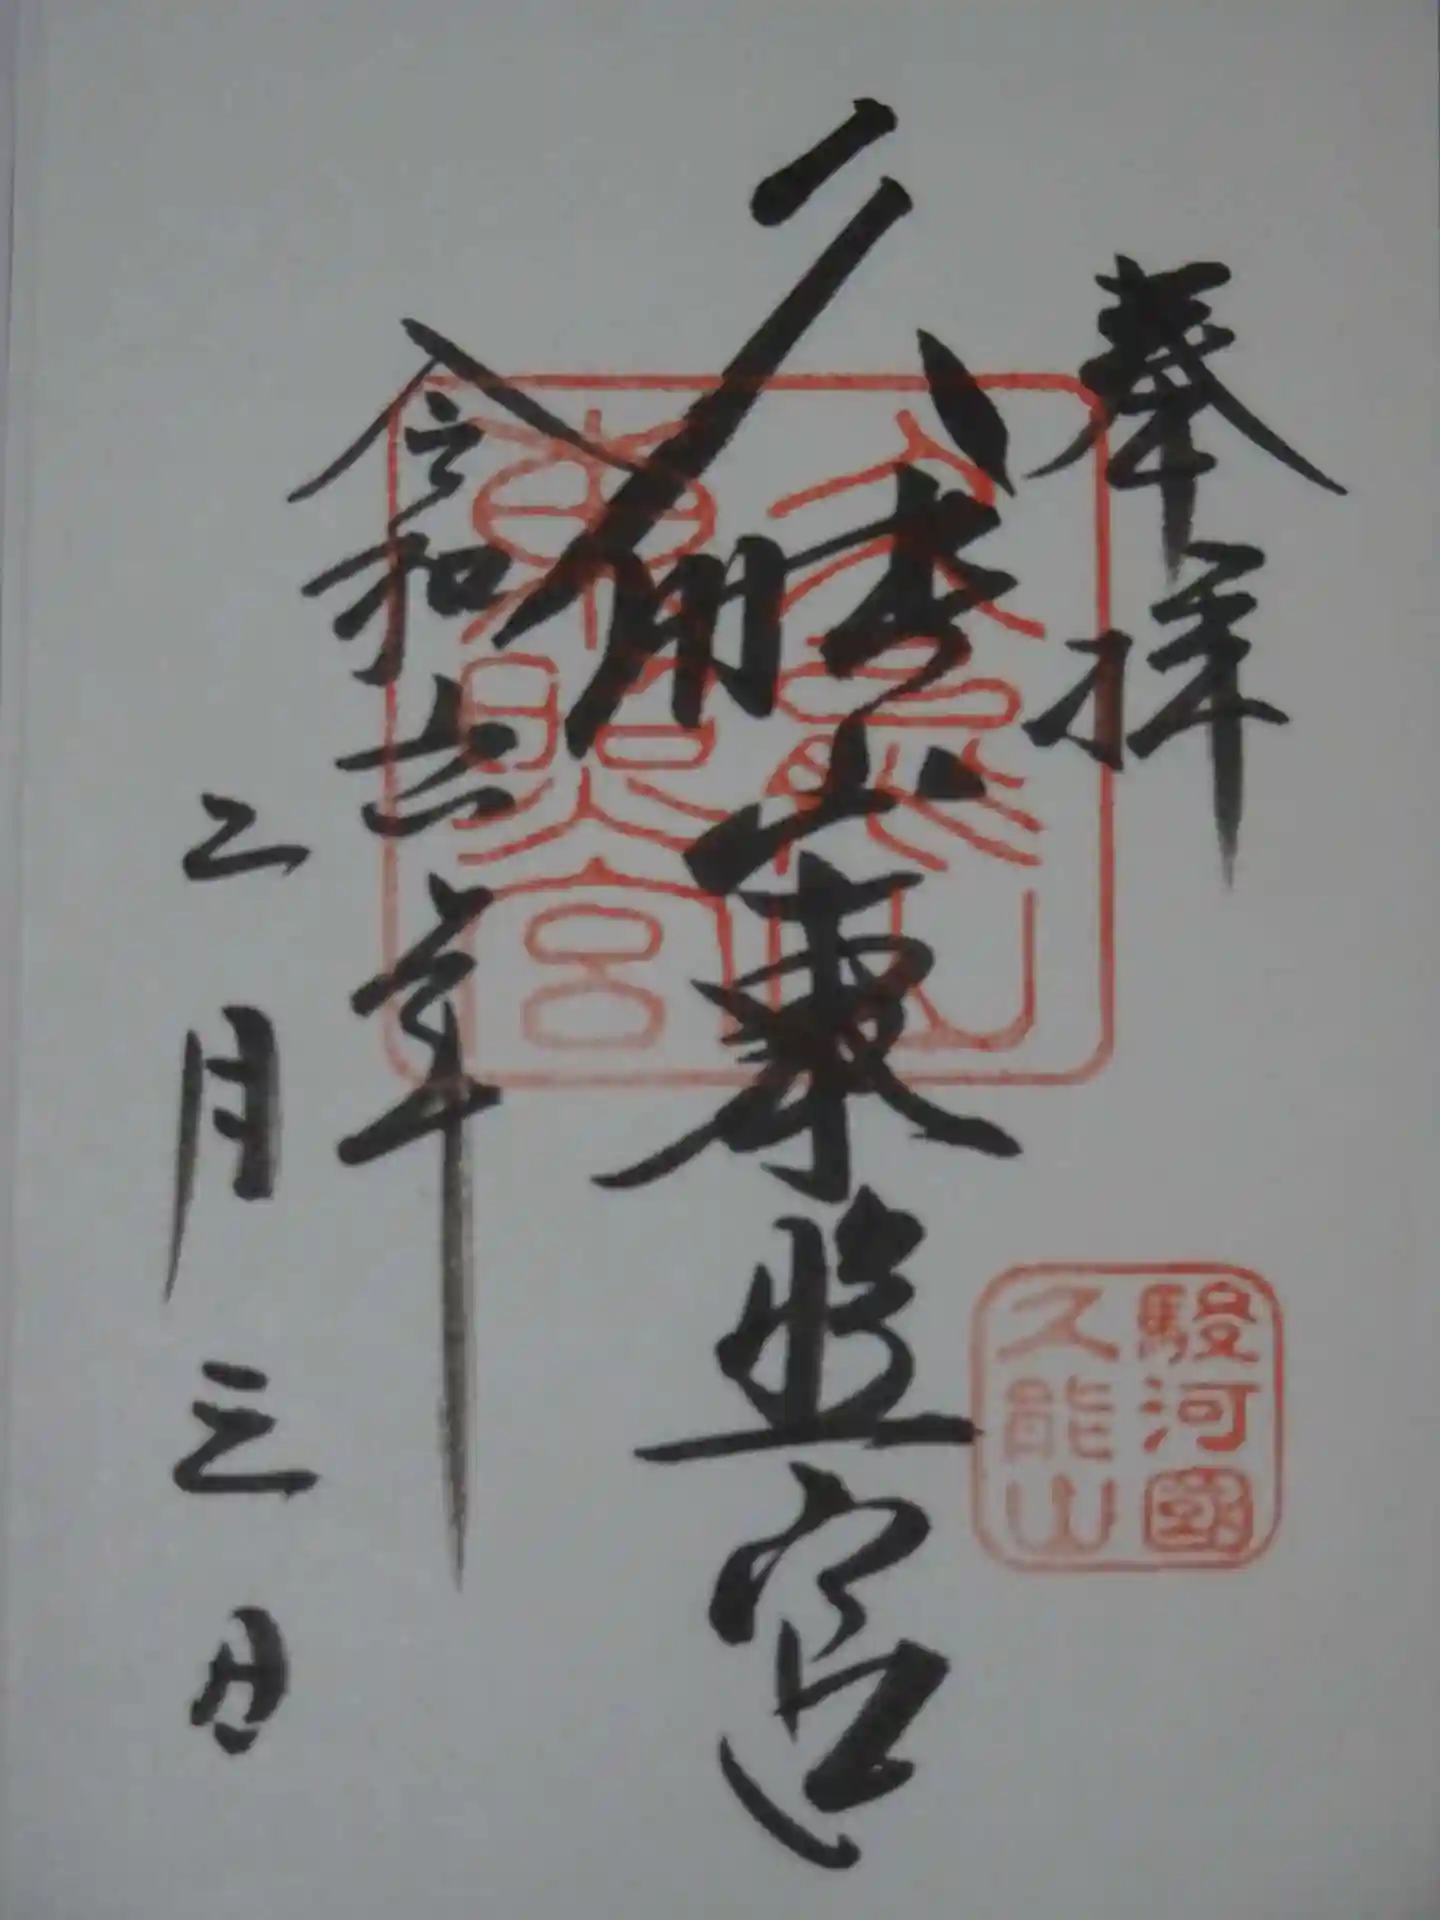 奉拝
久能山東照宮
令和六年
二月三日
久能山
東照宮
駿河國
久能山